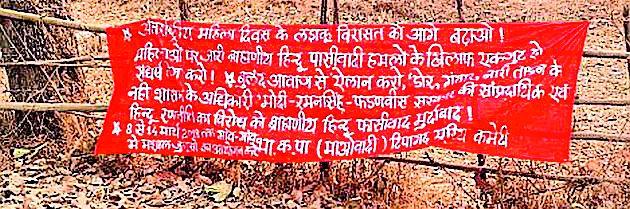 ★ अंतरराष्ट्रीय महिला दिवस के लडाकू विरासत को आगे बढ़ाओ !
महिलाओं पर जारी ब्राह्मणीय हिन्दू फासीवादी हमलों के खिलाफ एकजुट हो
संघर्ष तेज करो ! ★ बुलंद आवाज से ऐलान करो, 'ढोर, गंवार, नारी ताडन के
नहीं शासन के अधिकारी' मोदी-रमनसिंह-फडणवीस सरकार की सांप्रदायिक एवं
हिन्दू का विरोध करो ब्राह्मणीय हिन्दू फासीवाद मुर्दाबाद !
★ 8 से 14 मार्च गांव-गांव
में मशाल भा.क.पा (माओवादी) टिपागड एरिया कमेटी